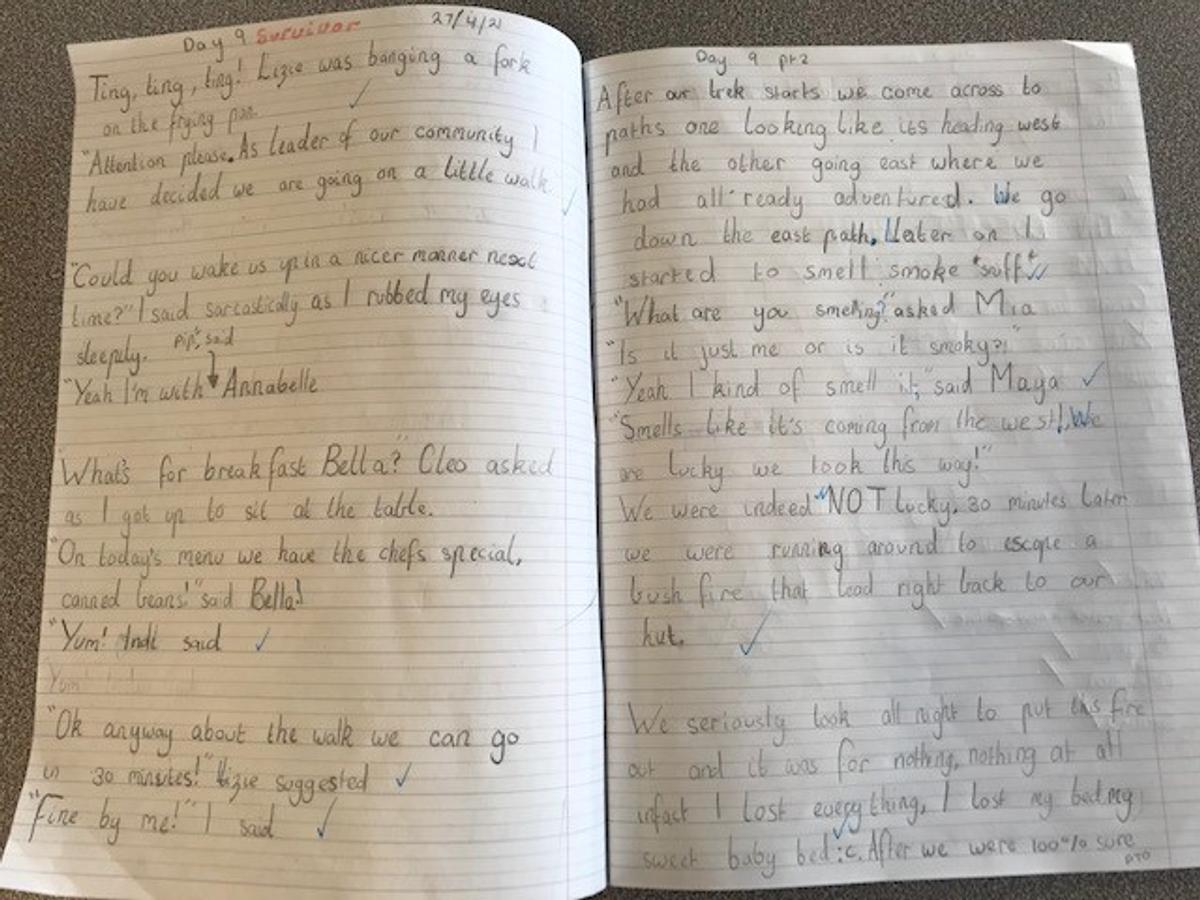 Day 9 Survivor 27/4/21
Ting, ting, ting! Lizie was banging a fork
on the frying pan.
"Attention please. As leader of our community I
have decided we are going on a little walk
"Could you wake us up in a nicer manner next
time?" I said sarcastically as I rubbed my eyes
sleepily.
Pip", said
"Yeah I'm with Annabelle
"What's for breakfast Bella?" Cleo asked
as I got up to sit at the table.
"On today's menu we have the chefs special,
canned beans!" said Bella!
"Yum! Indi said
Yum!
"Ok anyway about the walk we can go
in 30 minutes!" Lizie suggested
"Fine by me!" I said
Day 9 pt2
After our trek starts we come across to
paths one looking like its heading west
and the other going east where we
had all ready adventured. We go
down the east path. Later on I
started to smell smoke *suff*
"What are you smelling?" asked Mia
"Is it just me or is it smoky?!"
"Yeah I kind of smell it," said Maya
"Smells like it's coming from the west!, We
are lucky we took this way!"
We were indeed "NOT lucky. 30 minutes later
we were running around to escape a
bush fire that lead right back to our
hut.
We seriously took all night to put this fire
out and it was for nothing, nothing at all
infact I lost everything, I lost my bed my
sweet baby bed :c. After we were 100% sure
PTO